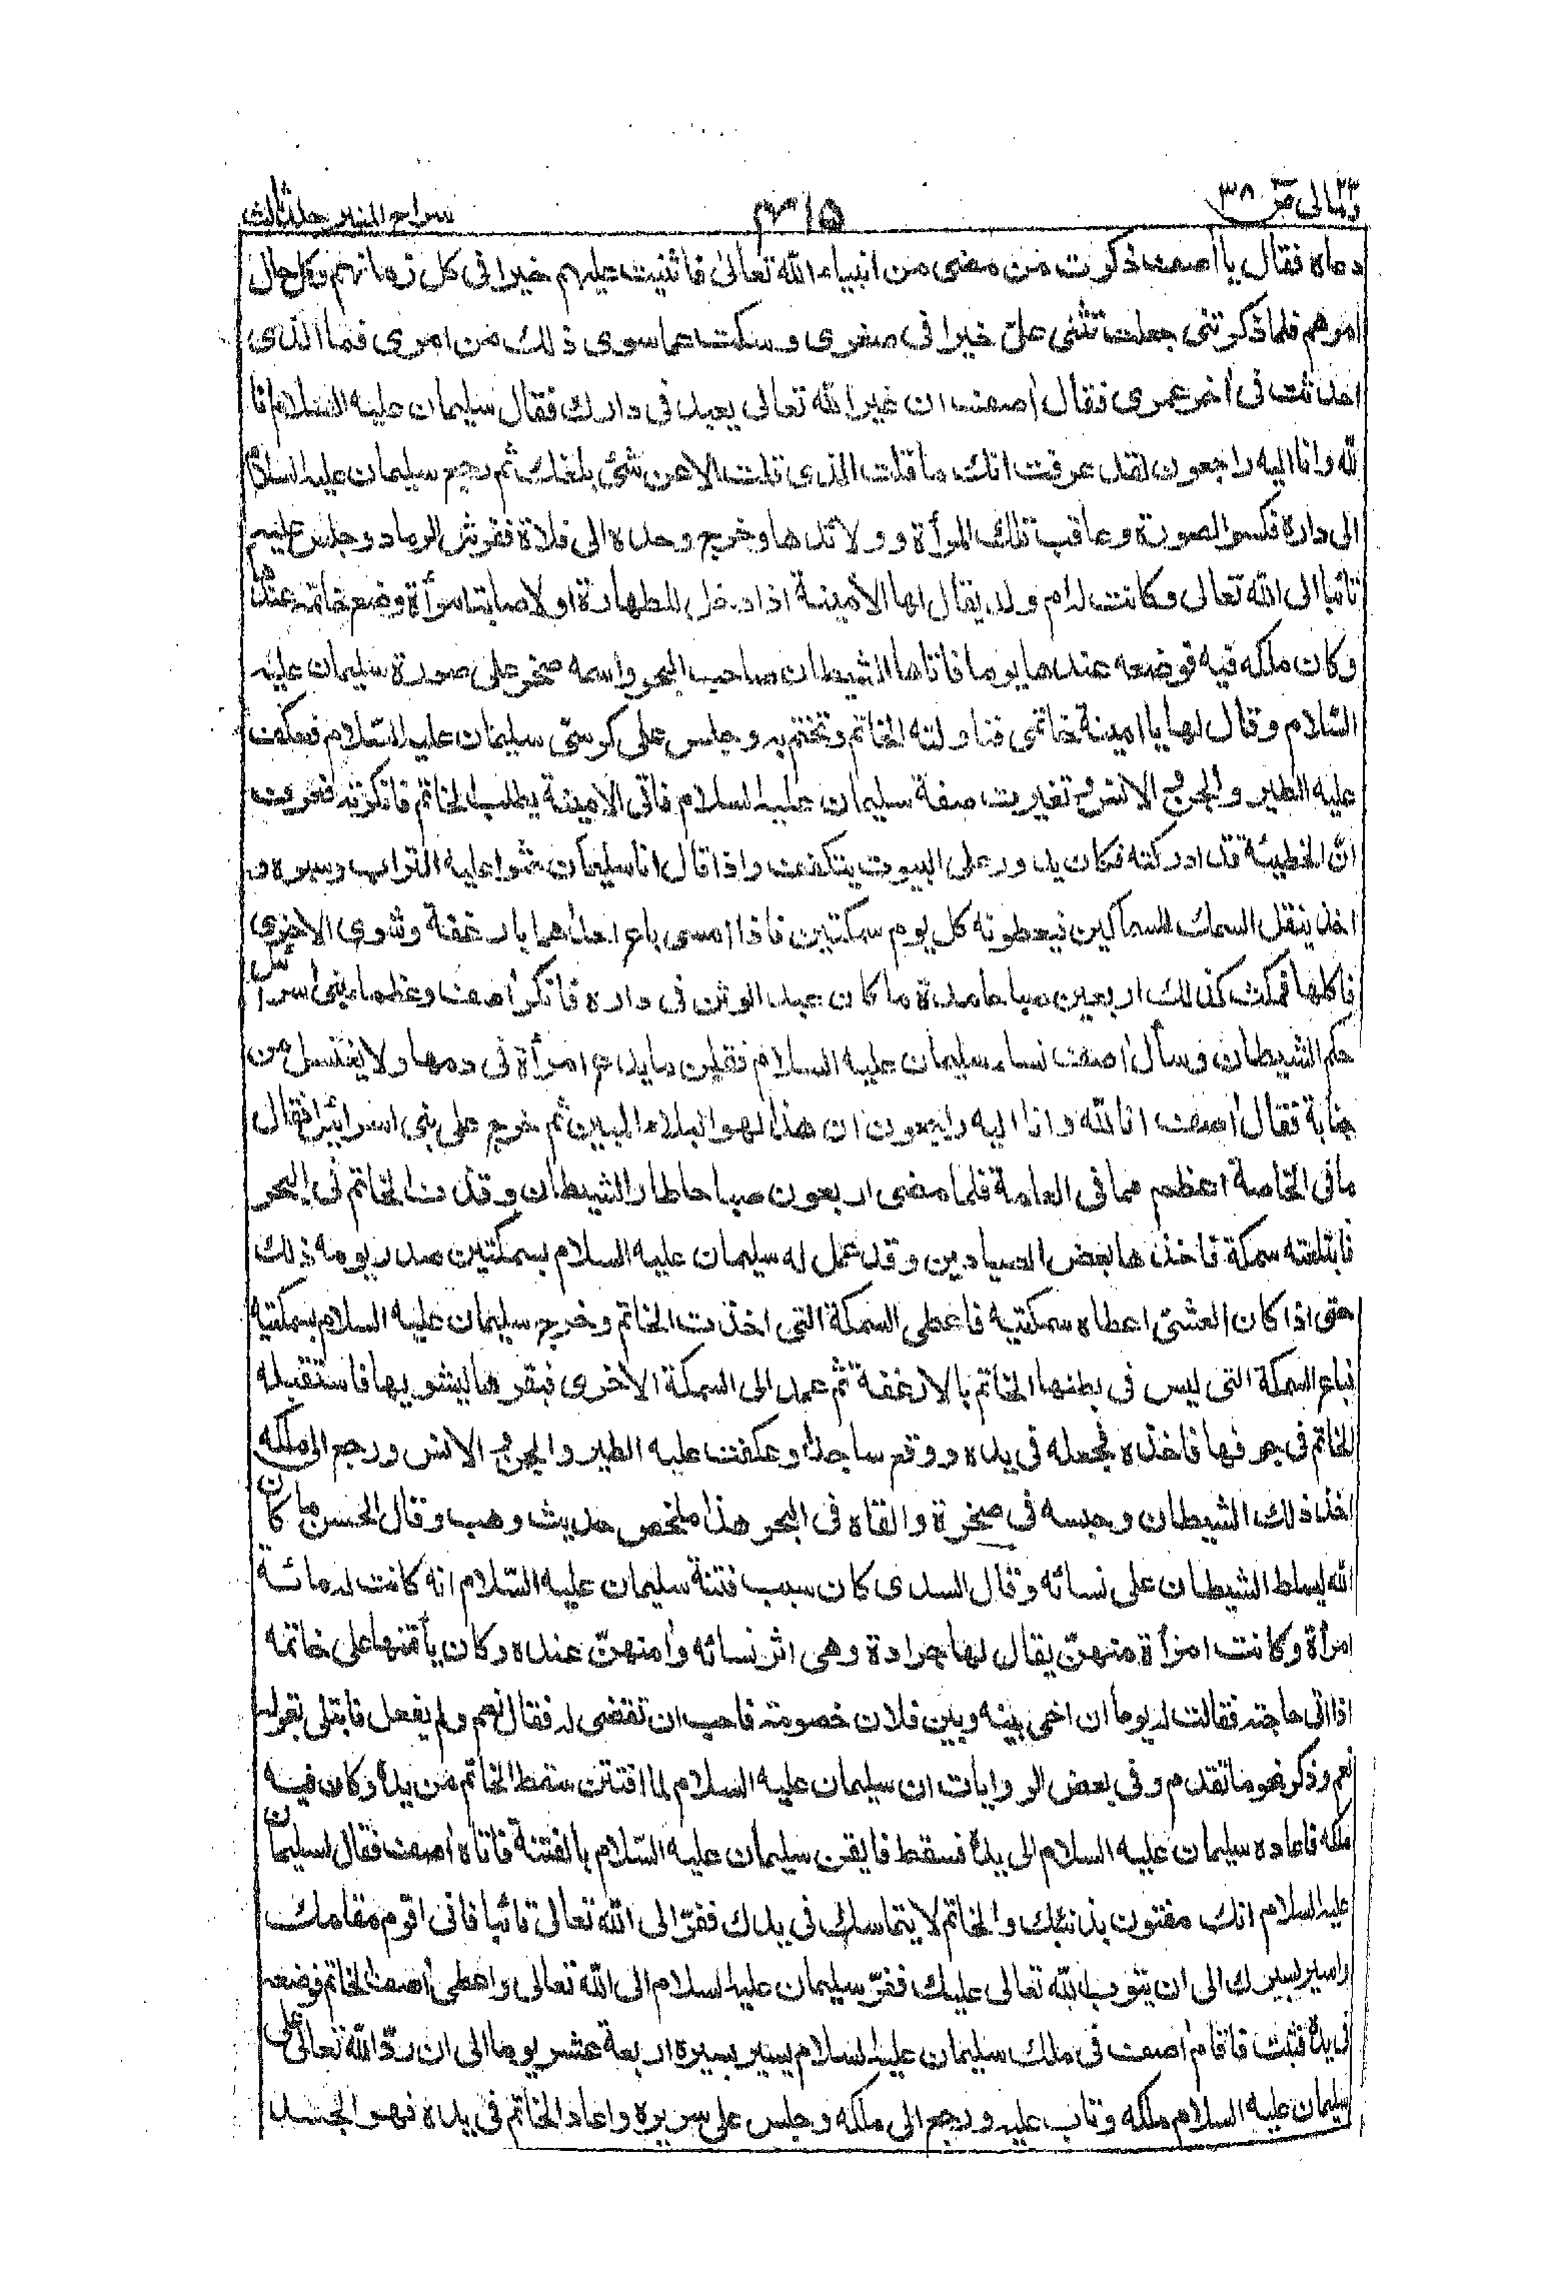 ومالی ۲۳ ص ۳۸
۴۱۵
سراج المنیر جلد ثالث
دعاه فقال يا أصف ذكرت من مضى من انبياء الله تعالى فاثنيت عليهم خيرا فى كل زمانهم وكل حال
امرهم فلما ذكرتنى جعلت تثنى علىّ خيرا فى صغرى وسكت عما سوى ذلك من امرى فما الذى
احدثت فى أخر عمرى فقال أصف ان غير الله تعالى يعبد فى دارك فقال سليمان عليه السلام انا
لله وانا اليه راجعون لقد عرفت انك ما قلت الذى قلت الا عن شئ بلغك ثم رجع سليمان عليه السلام
الى داره فكسر الصورة وعاقب تلك المرأة وولائدها وخرج وحده الى فلاة ففرش الرماد وجلس عليه
تائبا الى الله تعالى وكانت له ام ولد يقال لها الأمينة اذا دخل للطهارة او لاصابة امرأة وضع خاتمه عندها
وكان ملكه فيه فوضعه عندها يوما فاتاها الشيطان صاحب البحر واسمه صخر على صورة سليمان عليه
السّلام وقال لها يا امينة خاتمى فناولته الخاتم وتختم به وجلس على كرسىّ سليمان عليه السّلام فعكفت
عليه الطير والجن والانس وتغيرت صفة سليمان عليه السلام فاتى الامينة يطلب الخاتم فانكرته فعرفت
انّ الخطيئة قد ادركته فكان يدور على البيوت يتكفف واذا قال انا سليمان حثوا عليه التراب وسبوه و
اخذ ينقل السمك للسماكين فيعطونه كل يوم سمكتين فاذا امسى باع احداهما بارغفة وشوى الاخرى
فاكلها فمكث كذلك اربعين صباحا مدة ما كان عبد الوثن فى داره فانكر أصف وعظماء بنى اسرائيل
حكم الشيطان وسأل أصف نساء سليمان عليه السلام فقلن ما يدع امرأة فى دمها ولا يغتسل من
جنابة فقال أصف انا لله وانا اليه راجعون ان هذا لهو البلاء المبين ثم خرج على بنى اسرائيل فقال
ما فى الخاصة اعظم مما فى العامة فلما مضى اربعون صباحا طار الشيطان وقذف الخاتم فى البحر
فابتلعته سمكة فاخذها بعض الصيادين وقد عمل له سليمان عليه السلام بسمكتين صدر يومه ذلك
حتى اذا كان العشىّ اعطاه سمكتيه فاعطى السمكة التى اخذت الخاتم وخرج سليمان عليه السلام بسمكتيه
فباع السمكة التى ليس فى بطنها الخاتم بالارغفة ثم عمد الى السمكة الاخرى فبقرها ليشويها فاستقبله
الخاتم فى جوفها فاخذه فجعله فى يده ووقع ساجدا وعكفت عليه الطير والجن والانس ورجع الى ملكه
اخذ ذلك الشيطان وحبسه فى صخرة والقاه فى البحر هذا ملخص حديث وهب وقال الحسن ما كان
الله ليسلط الشيطان على نسائه وقال السدى كان سبب فتنة سليمان عليه السّلام انه كانت له مائة
امرأة وكانت امرأة منهنّ يقال لها جرادة وهى اثر نسائه وأمنهنّ عنده وكان يأتمنها على خاتمه
اذا اتى حاجته فقالت له يوما ان اخى بينه وبين فلان خصومة فاحب ان تقضى له فقال نعم ولم يفعل فابتلى بقوله
نعم وذكر نحو ما تقدم وفى بعض الروايات ان سليمان عليه السلام لما افتتن سقط الخاتم من يده وكان فيه
ملكه فاعاده سليمان عليه السلام الى يده فسقط فايقن سليمان عليه السّلام بالفتنة فاتاه أصف فقال لسليمان
عليه السلام انك مفتون بذنبك والخاتم لا يتماسك فى يدك ففرّ الى الله تعالى تائبا فانى اقوم مقامك
واسير بسيرك الى ان يتوب الله تعالى عليك ففرّ سليمان عليه السلام الى الله تعالى واعطى أصف الخاتم فوضعه
فى يده فثبت فاقام أصف فى ملك سليمان عليه السلام يسير بسيره اربعة عشر يوما الى ان ردّ الله تعالى على
سليمان عليه السلام ملكه وتاب عليه ورجع الى ملكه وجلس على سريره واعاد الخاتم فى يده فهو الجسد